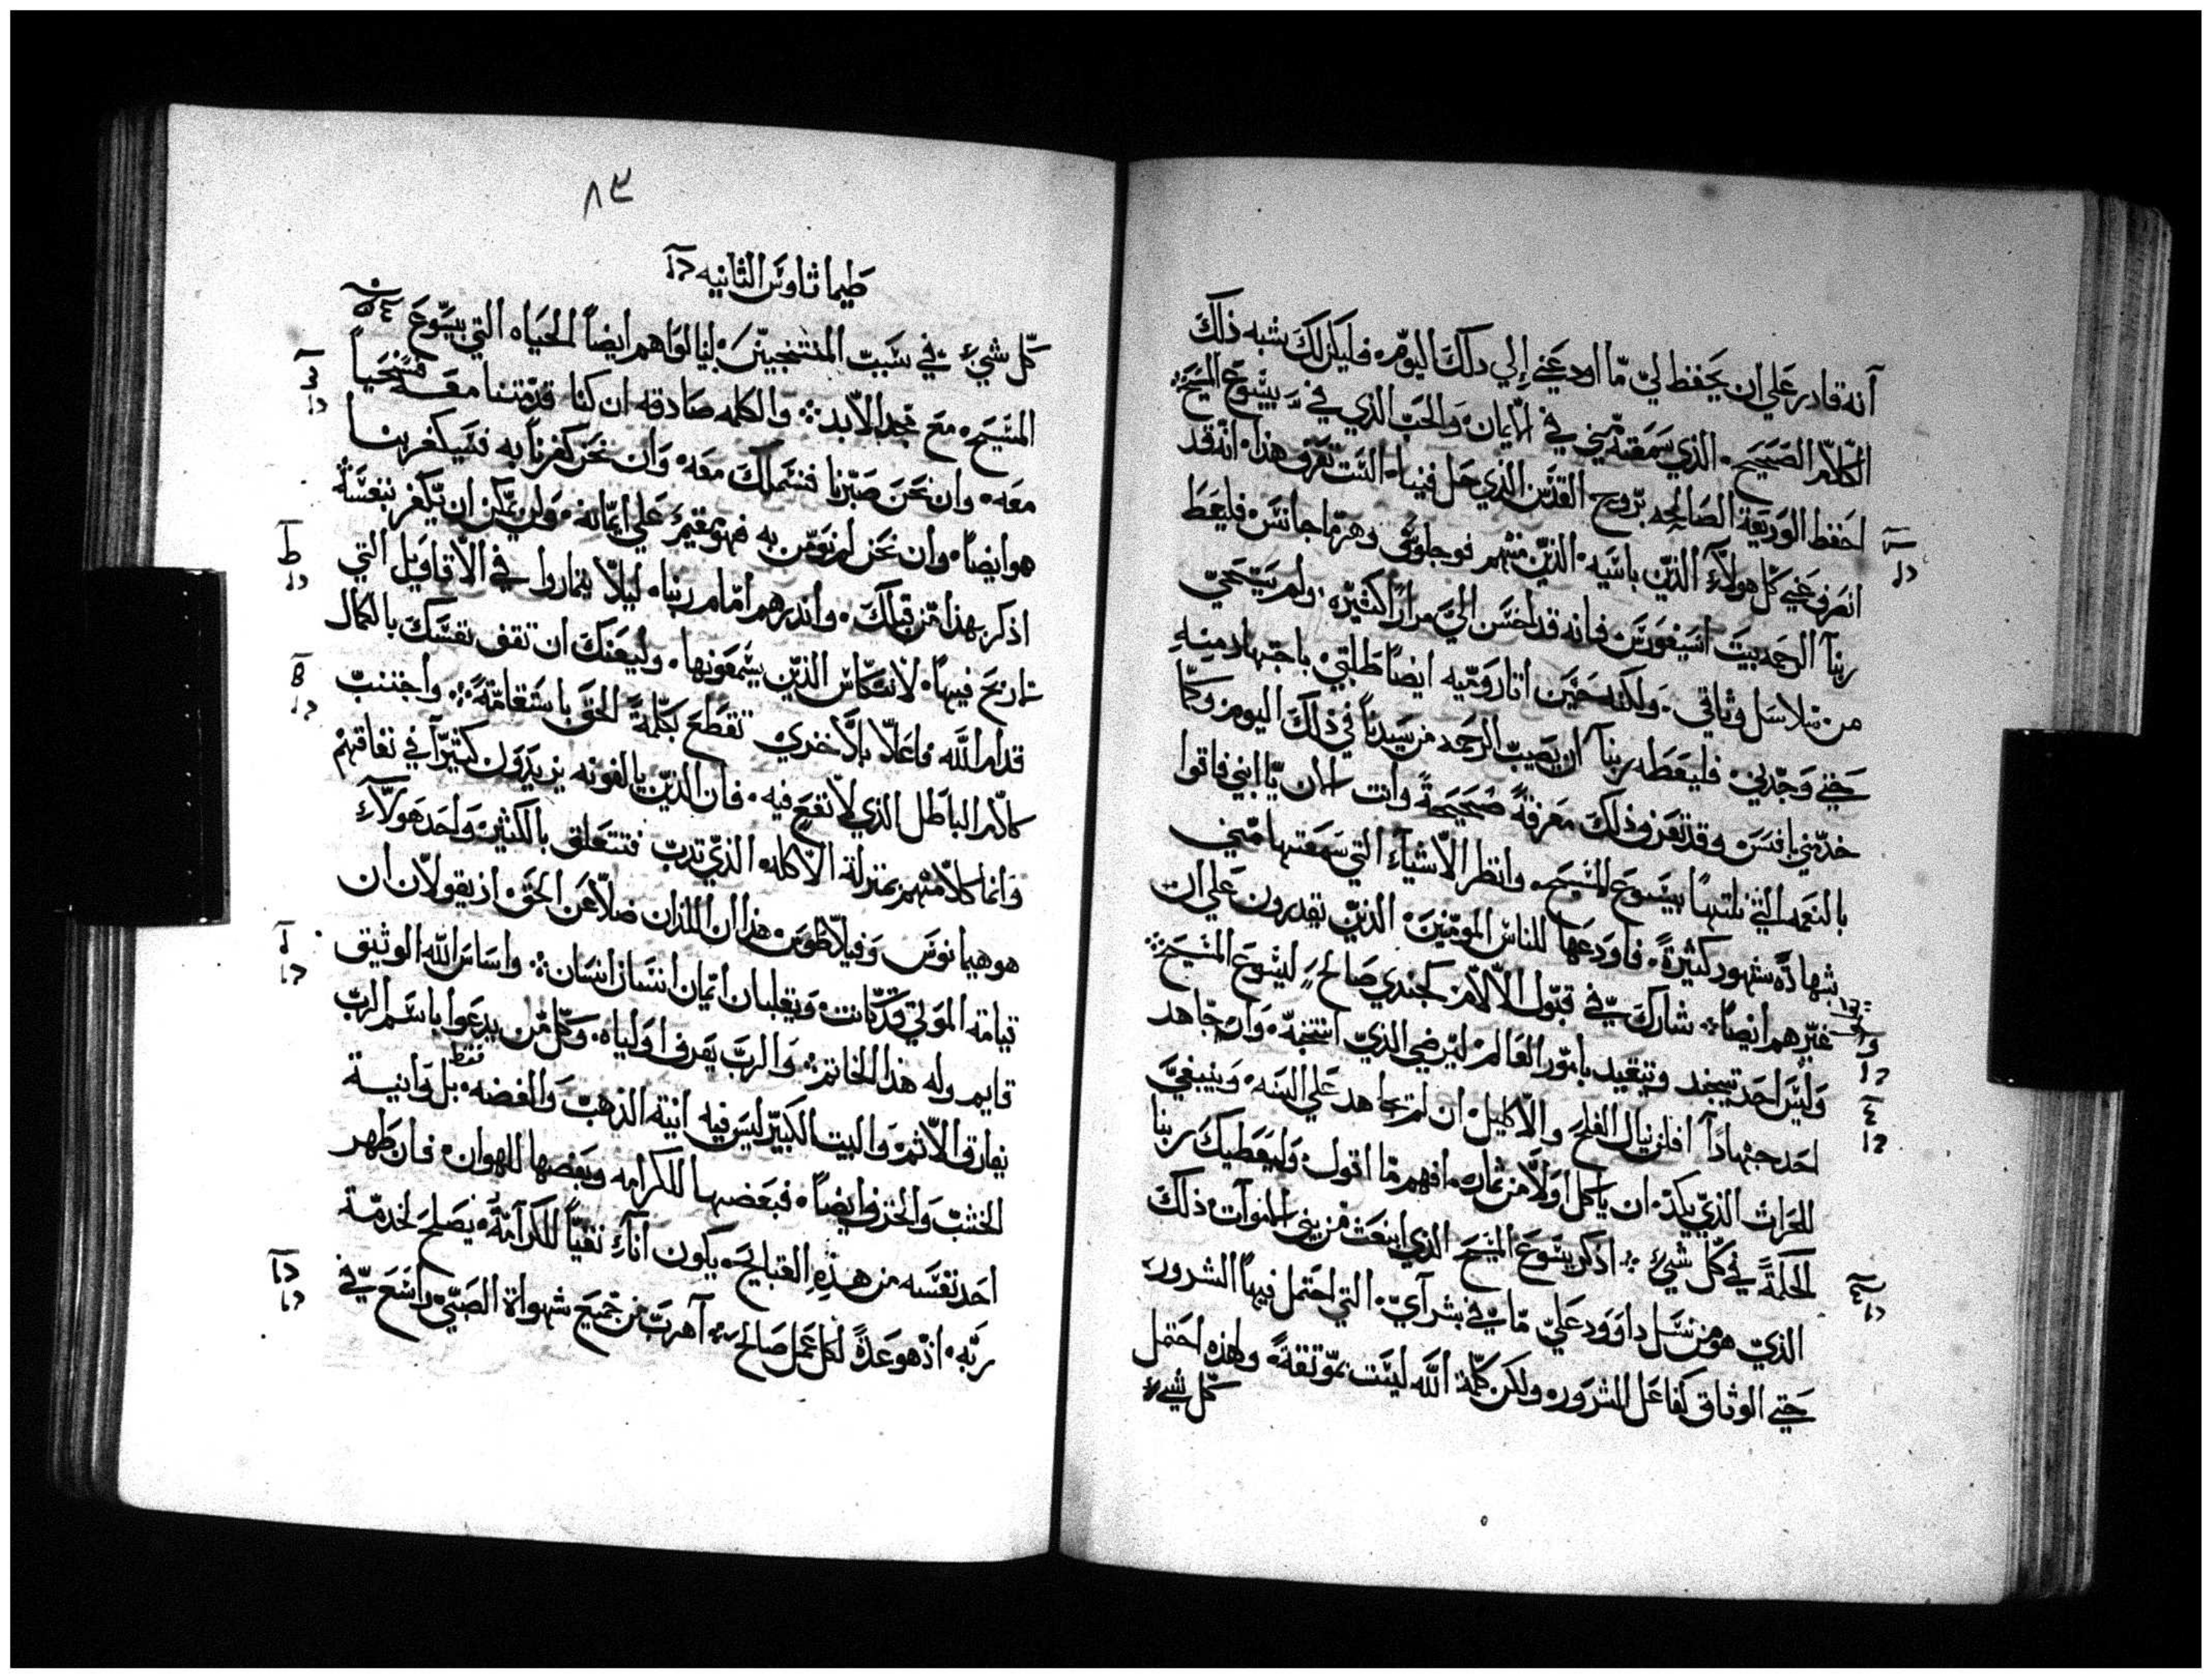 أنه قادر علي ان يحفظ لي ما اودعني إلي ذلك اليوم فليكن لك شبه ذلك
الكلام الصحيح الذي سمعته مني في الايمان والحب الذي في بيسوع المسيح
احفظ الوديعة الصالحه بروح القدس الذي حل فينا الست تعرف هذا انه قد
انصرف عني كل هولآء الذين باسيه الذين منهم فوجلوس وهرماجانس فليعط
ربنآ الرحمه لبيت انسيفورس فانه قد احسن الي مراراً كثيره ولم يستحي
من سلاسل وثاقي ولكنه حين اتا روميه ايضاً طلبني باجتهاد منه
حتي وجدني فليعطه ربنآ ان يصيب الرحمه من سيدنا في ذلك اليوم وكما
خدمني بافسس وقد تعرف ذلك معرفة صحيحة وانت الان يا ابني فاقوا
بالنعمه التي نلتها بيسوع المسيح وانظر الاشيآء التي سمعتها مني
بشهادة شهور كثيرة فاودعها للناس المومنين الذين يقدرون علي ان
غيرهم ايضاً شارك في قبول الالام كجندي صالح ليسوع المسيح
وليس احد تيجند ويتقيد بامور العالم ليرضي الذي انتخبه وان جاهد
احد جهادآ افلن ينال الفلح والاكليل ان لم يجاهد علي السنه وينبغي
للحراث الذي يكد ان ياكل اولاً من ثماره افهم ما اقول وليعطيك ربنا
الحكمة في كل شيء اذكر يسوع المسيح الذي انبعث من بين الموآت ذلك
الذي هو من نسل داوود علي ما في بشرآي التي احتمل فيها الشرور
حتي الوثاق كفاعل الشرور ولكن كلمة الله ليست بموثقة ولهذه احتمل
كل شيء
٨٣
طيماثاوس الثانيه
كل شيء في سبب المنتجبين لينالوا هم ايضاً الحياه التي بيسوع
المسيح مع مجد الابد والكلمه صادقه ان كنا قد متنا معه فسنحيا
معه وان نحن صبرنا فسنملك معه وان نحن كفرنا به فسيكفر بنا
هو ايضاً وان نحن لم نومن به فهو مقيم علي ايمانه ولن يمكن ان يكفر بنفسه
اذكر بهذا من قبلك وانذرهم امام ربنا ليلا يتماروا في الاقاويل التي
لا ربح فيها لانتكاس الذين يسمعونها وليعنك ان تقف نفسك بالكمال
قدام الله فاعلا بلا خزي تقطع بكلمة الحق باستقامة واجتنب
كلام الباطل الذي لا نفع فيه فان الذين يالفونه يزيدون كثيرآ في نفاقهم
وانما كلامهم بمنزلة الاكله الذي تدب فتتعلق بالكثير واحد هولآء
هو هيمانوس وفيلاطوس هذان اللذان ضلا عن الحق اذ يقولان ان
قيامة الموتي قد كانت ويقلبان ايمان انسان انسان واساس الله الوثيق
قايم وله هذا الخاتم والرب يعرف اولياه وكل من يدعوا باسم الرب
يفارق الاثم والبيت الكبير ليس فيه انية الذهب والفضه فقط بل وانية
الخشب والخزف ايضاً فبعضها للكرامه وبعضها للهوان فان طهر
احد نفسه من هذه القبايح يكون انآء نقياً للكرآمة يصلح لخدمة
ربه اذ هو عدة لكل عمل صالح آهرب من جميع شهواة الصبي واسع في